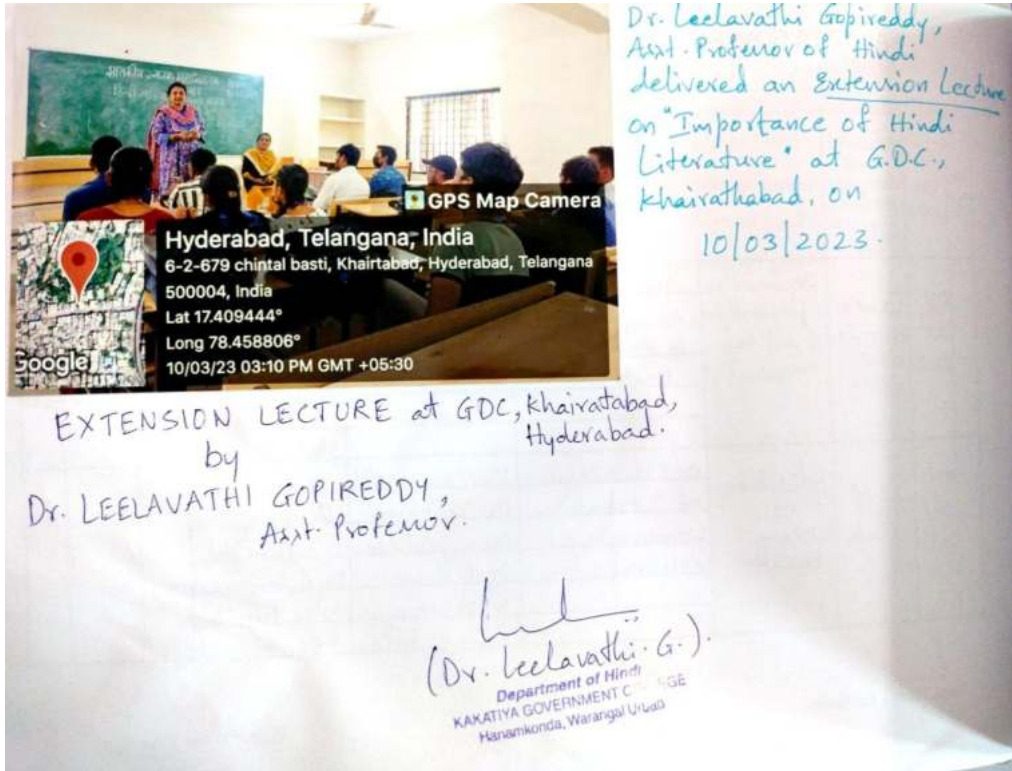 GPS Map Camera
Hyderabad, Telangana, India
6-2-679 chintal basti, Khairtabad, Hyderabad, Telangana
500004, India
Lat 17.409444°
Long 78.458806°
10/03/23 03:10 PM GMT +05:30
Google
Dr. Leelavathi Gopireddy,
Asst. Professor of Hindi
delivered an Extension Lecture
on "Importance of Hindi
Literature" at G.D.C.,
Khairathabad, on
10/03/2023.
EXTENSION LECTURE at GDC, Khairatabad,
Hyderabad.
by
Dr. LEELAVATHI GOPIREDDY,
Asst. Professor.
(Dr. Leelavathi. G.).
Department of Hindi
KAKATIYA GOVERNMENT
Hanamkonda, Warangal Urban